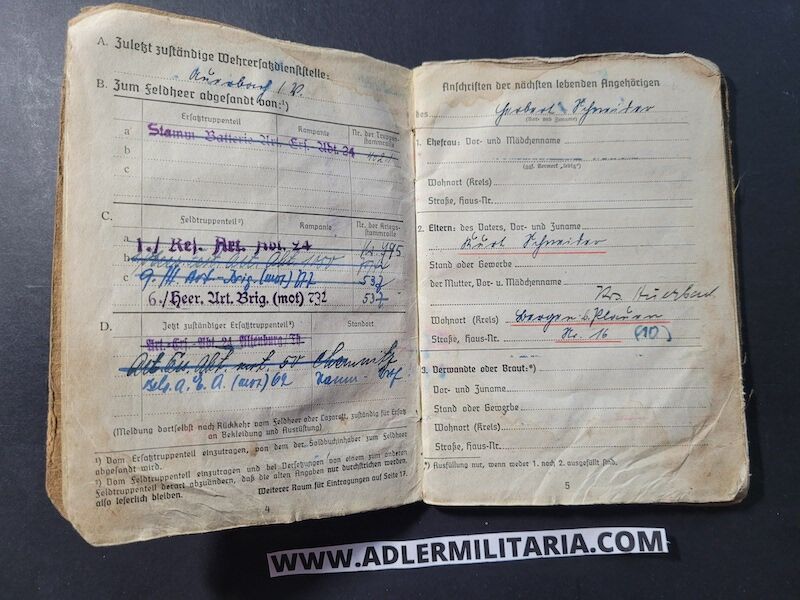 A. Zuletzt zuständige Wehrersatzdienststelle:
Auerbach i. V.
B. Zum Feldheer abgesandt von:¹)
Ersatztruppenteil Kompanie Nr. der Truppenstammrolle
a Stamm-Batterie Art. Ers. Abt. 24
b
c
C. Feldtruppenteil²) Kompanie Nr. der Kriegsstammrolle
a 1./ Res. Art. Abt. 24
b
c 9./ Art. Brig. (mot) 537
6./Heer. Art. Brig. (mot) 732 537
D. Jetzt zuständiger Ersatztruppenteil³) Standort
Art.-Ers.-Abt. 24 Altenburg, Th.
Chemnitz
A. E. A. (mot) 62
(Meldung dortselbst nach Rückkehr vom Feldheer oder Lazarett, zuständig für Ersatz an Bekleidung und Ausrüstung)
¹) Vom Ersatztruppenteil einzutragen, von dem der Soldbuchinhaber zum Feldheer abgesandt wird.
²) Vom Feldtruppenteil einzutragen und bei Versetzungen von einem zum anderen Feldtruppenteil derart abzuändern, daß die alten Angaben nur durchstrichen werden, also leserlich bleiben.
Weiterer Raum für Eintragungen auf Seite 17.
4
Anschriften der nächsten lebenden Angehörigen
des Herbert Schneider
(Vor- und Zuname)
1. Ehefrau: Vor- und Mädchenname
(ggf. Vermerk „ledig")
Wohnort (Kreis)
Straße, Haus-Nr.
2. Eltern: des Vaters, Vor- und Zuname
Kurt Schneider
Stand oder Gewerbe
der Mutter, Vor- u. Mädchenname
Krs. Auerbach
Wohnort (Kreis) Bergen b. Plauen
Straße, Haus-Nr. Nr. 16 (10)
3. Verwandte oder Braut:*)
Vor- und Zuname
Stand oder Gewerbe
Wohnort (Kreis)
Straße, Haus-Nr.
*) Ausfüllung nur, wenn weder 1. noch 2. ausgefüllt sind.
5
WWW.ADLERMILITARIA.COM